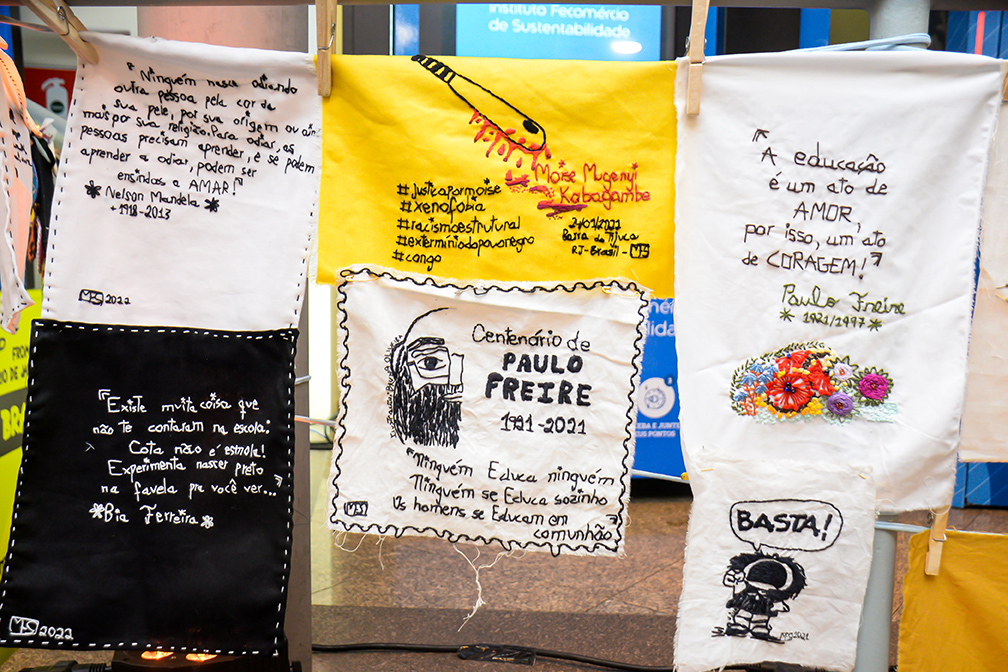 Instituto Fecomércio
de Sustentabilidade
"Ninguém nasce odiando
outra pessoa pela cor da
sua pele, por sua origem ou ain
mais por sua religião. Para odiar, as
pessoas precisam aprender, e se podem
aprender a odiar, podem ser
ensinadas a AMAR!"
* Nelson Mandela *
+1918-2013
MFS 2022
Moïse Mugenyi
Kabagambe
#justiçapormoise
#xenofobia
#racismoestrutural
#extermíniodopovonegro
#congo
24/01/2022
Barra da Tijuca
RJ-Brasil - MFS
"A educação
é um ato de
AMOR,
por isso, um ato
de CORAGEM!"
Paulo Freire
* 1921/1997 *
"Existe muita coisa que
não te contaram na escola;
Cota não é esmola!
Experimenta nascer preto
na favela pra você ver..."
*Bia Ferreira*
MFS 2022
Centenário de
PAULO
FREIRE
1921-2021
"Ninguém Educa ninguém
Ninguém se Educa sozinho
Os homens se Educam em
comunhão"
MFS
BASTA!